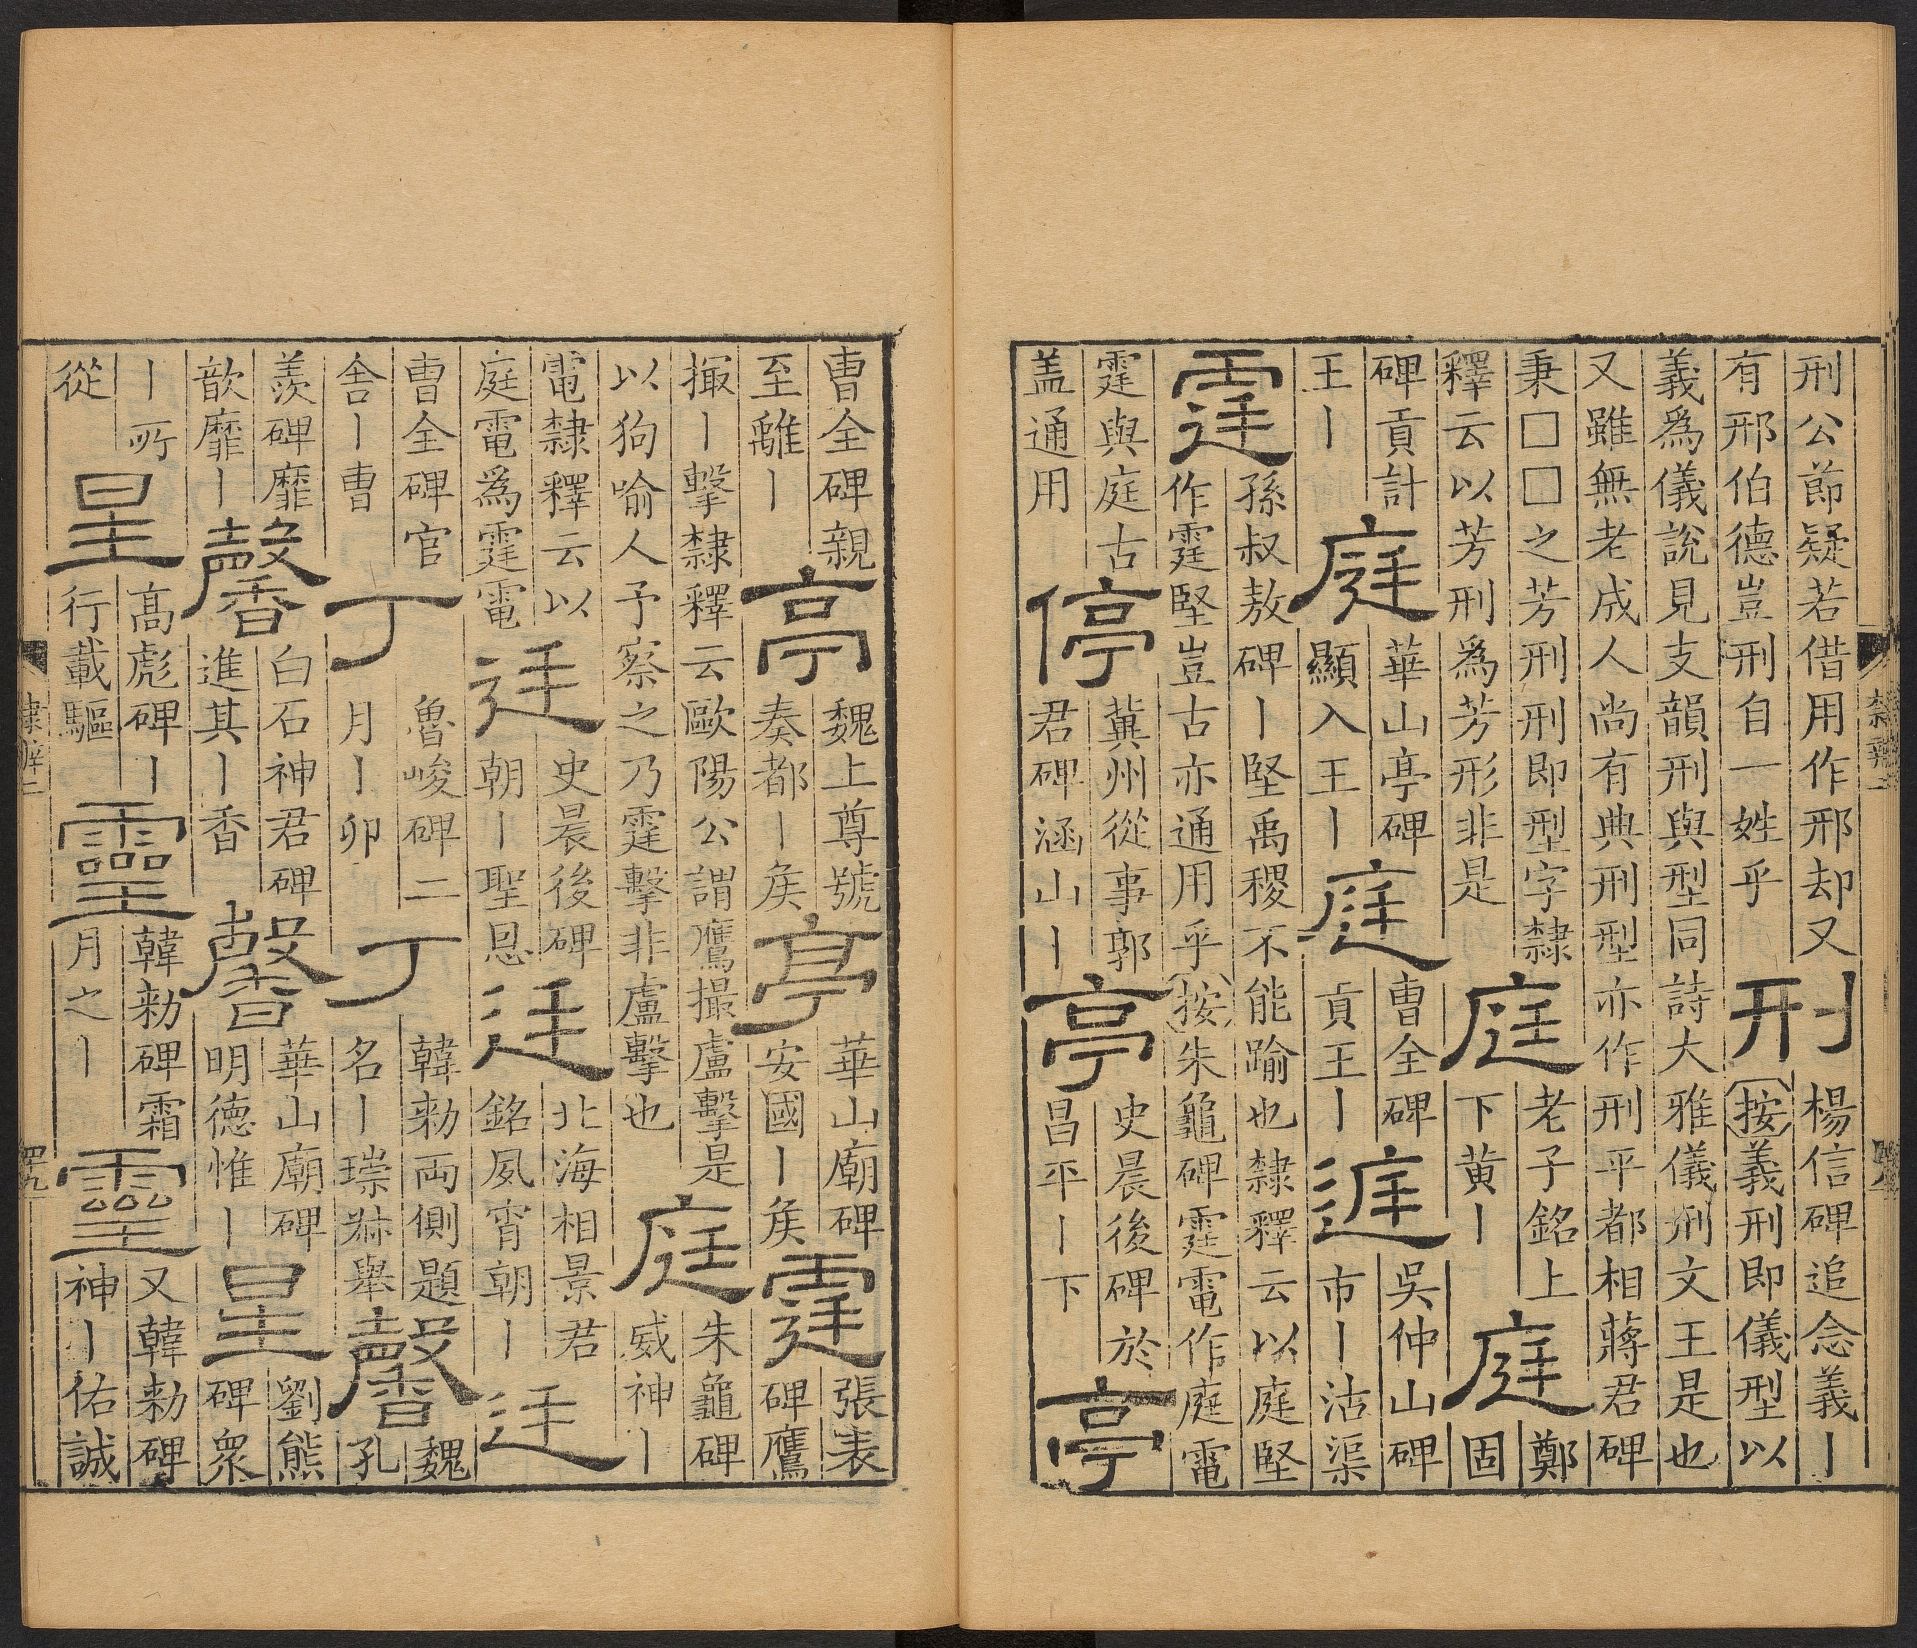 刑公節疑若借用作邢却又
有邢伯德豈刑自一姓乎
刑
楊信碑追念義丨
按義刑即儀型以
義爲儀說見支韻刑與型同詩大雅儀刑文王是也
又雖無老成人尚有典刑型亦作刑平都相蔣君碑
秉□□之芳刑刑即型字隸
釋云以芳刑爲芳形非是
庭
老子銘上
下黄丨
庭
鄭
固
碑貢計
王丨
庭
華山亭碑
顯入王丨
庭
曹全碑
貢王丨
吳仲山碑
市丨沽渠
霆
孫叔敖碑丨堅禹稷不能踰也隸釋云以庭堅
作霆堅豈古亦通用乎按朱龜碑霆電作庭電
霆與庭古
盖通用
停
冀州從事郭
君碑涵山丨
亭
史晨後碑於
昌平丨下
亭
曹全碑親
至離丨
亭
魏上尊號
奏都丨矦
亭
華山廟碑
安國丨矦
霆
張表
碑鷹
撮丨擊隸釋云歐陽公謂鷹撮盧擊是
以狗喻人予察之乃霆擊非盧擊也
庭
朱龜碑
威神丨
電隸釋云以
庭電爲霆電
廷
史晨後碑
朝丨聖恩
廷
北海相景君
銘夙宵朝丨
廷
曹全碑官
舍丨曹
丁
魯峻碑二
月丨卯
丁
韓勑兩側題
名丨琮舉
馨
魏
孔
羡碑靡
歆靡丨
馨
白石神君碑
進其丨香
馨
華山廟碑
明德惟丨
星
劉熊
碑衆
丨所
從
星
高彪碑丨
行載驅
靈
韓勑碑霜
月之丨
靈
又韓勑碑
神丨佑誠
隸辨二
四九